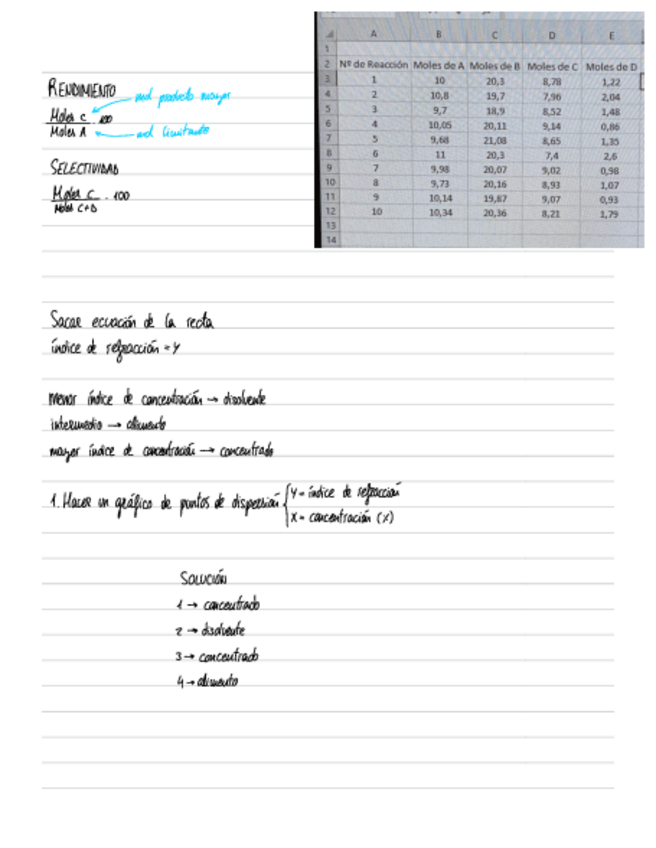 RENDIMIENTO
Moles C . 100
Moles A
mol producto mayor
mol limitante
SELECTIVIDAD
Moles C . 100
Moles C+D
A B C D E
1
2 Nº de Reacción Moles de A Moles de B Moles de C Moles de D
3 1 10 20,3 8,78 1,22
4 2 10,8 19,7 7,96 2,04
5 3 9,7 18,9 8,52 1,48
6 4 10,05 20,11 9,14 0,86
7 5 9,68 21,08 8,65 1,35
8 6 11 20,3 7,4 2,6
9 7 9,98 20,07 9,02 0,98
10 8 9,73 20,16 8,93 1,07
11 9 10,14 19,87 9,07 0,93
12 10 10,34 20,36 8,21 1,79
13
14
Sacar ecuación de la recta
índice de refracción = y
menor índice de concentración → disolvente
intermedio → alimento
mayor índice de concentración → concentrado
1. Hacer un gráfico de puntos de dispersión
y = índice de refracción
x = concentración (x)
SOLUCIÓN
1 → concentrado
2 → disolvente
3 → concentrado
4 → alimento